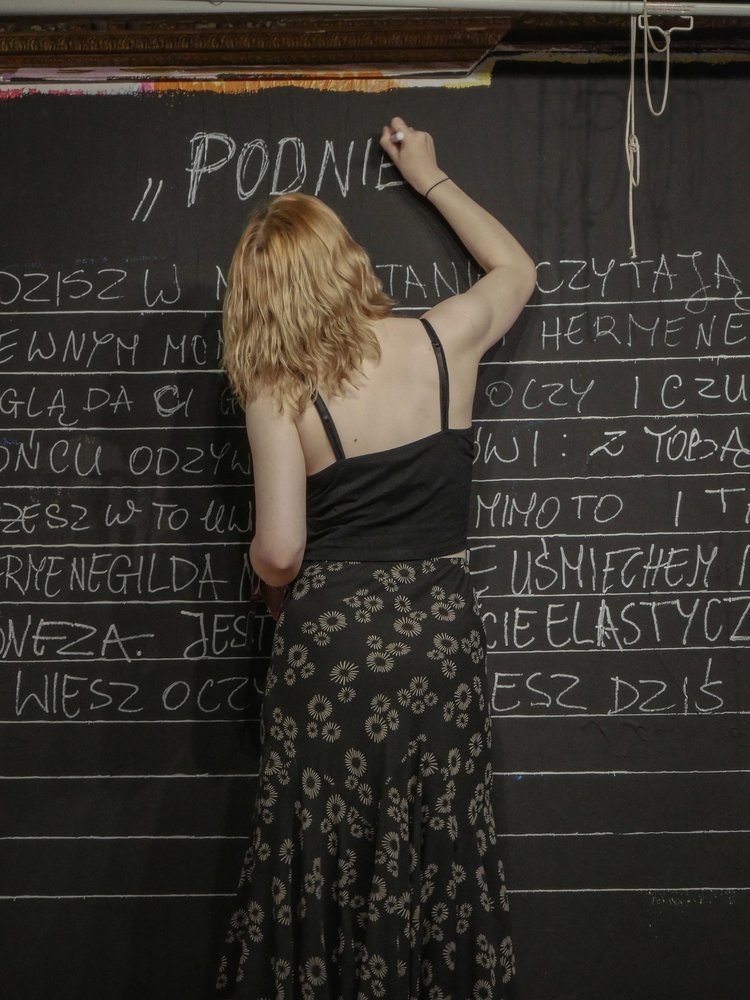 „PODNIE
DZISZ W N TANI CZYTAJĄ
EWNYM MO HERMENE
GLĄDA CI OCZY I CZU
OŃCU ODZYW ÓWI: Z TOBĄ
ZESZ W TO MIMO TO I T
RMENEGILDA M Ę UŚMIECHEM
ONEZA. JEST CIE ELASTYCZ
WIESZ OCZY ESZ DZIŚ